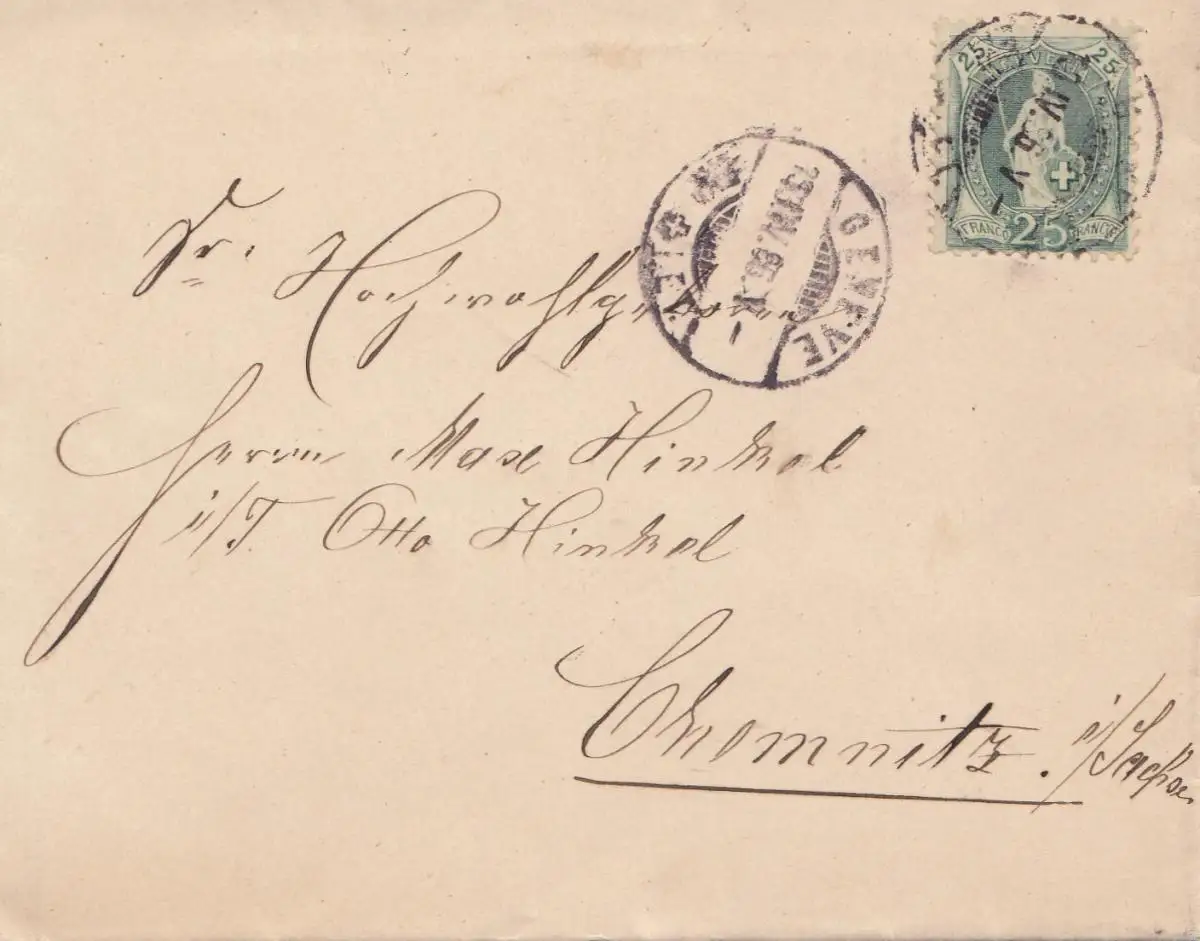 25
25
HELVETIA
FRANCO 25 FRANCO
GENÈVE
Sr. Hochwohlgeboren
Herrn Max Hinkel
i/F. Otto Hinkel
Chemnitz. i/Sachsen